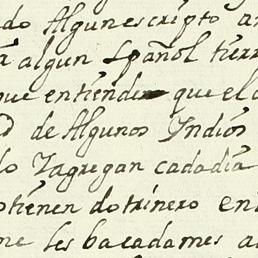 do Algun escripto a
a algun español tierr
que entiende que el
d de Algunos Yndios
lo Tagregan cadadia
tienen dotrinero en
me les bacadames a